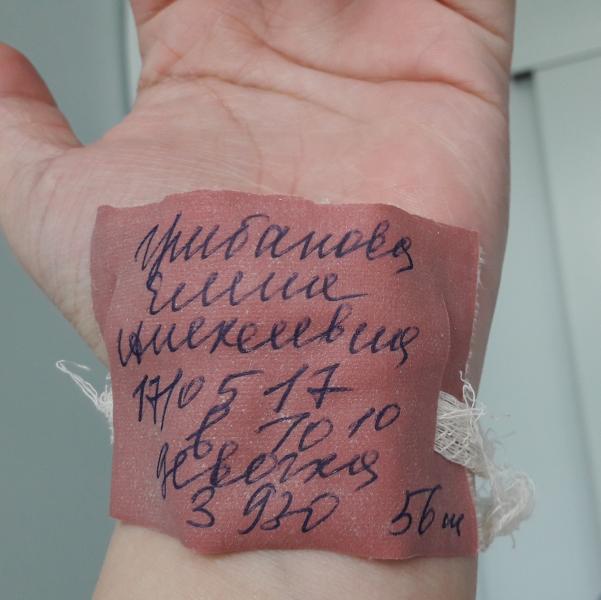 Грибанова
Елена
Алексеевна
17/05 17
в 10 10
девочка
3 930 56 см